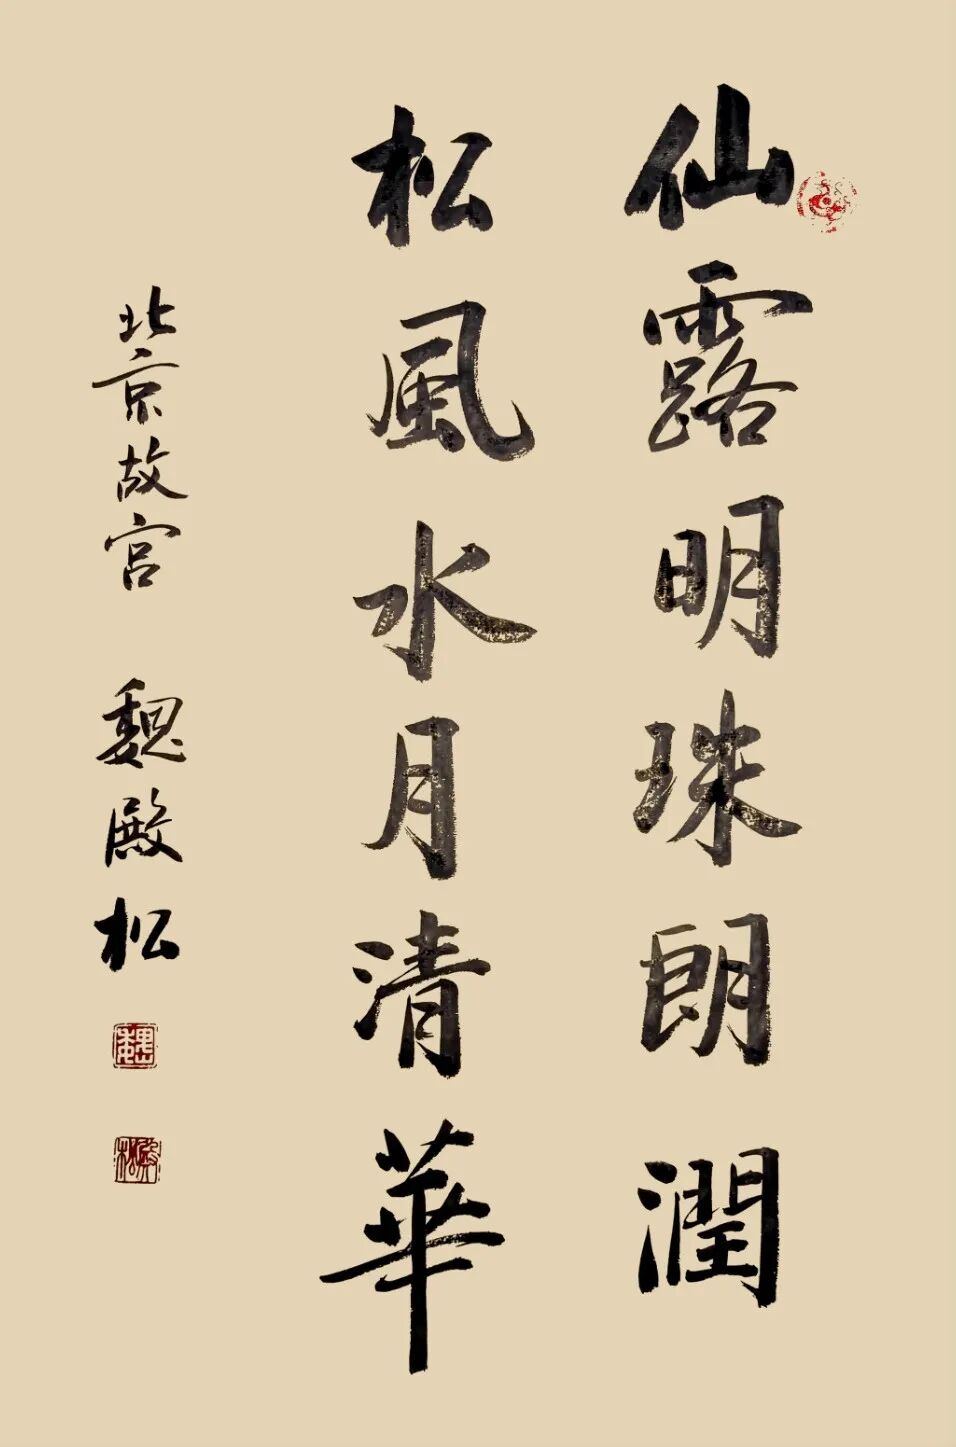 仙露明珠朗潤
松風水月清華
北京故宫 魏殿松
魏
殿松